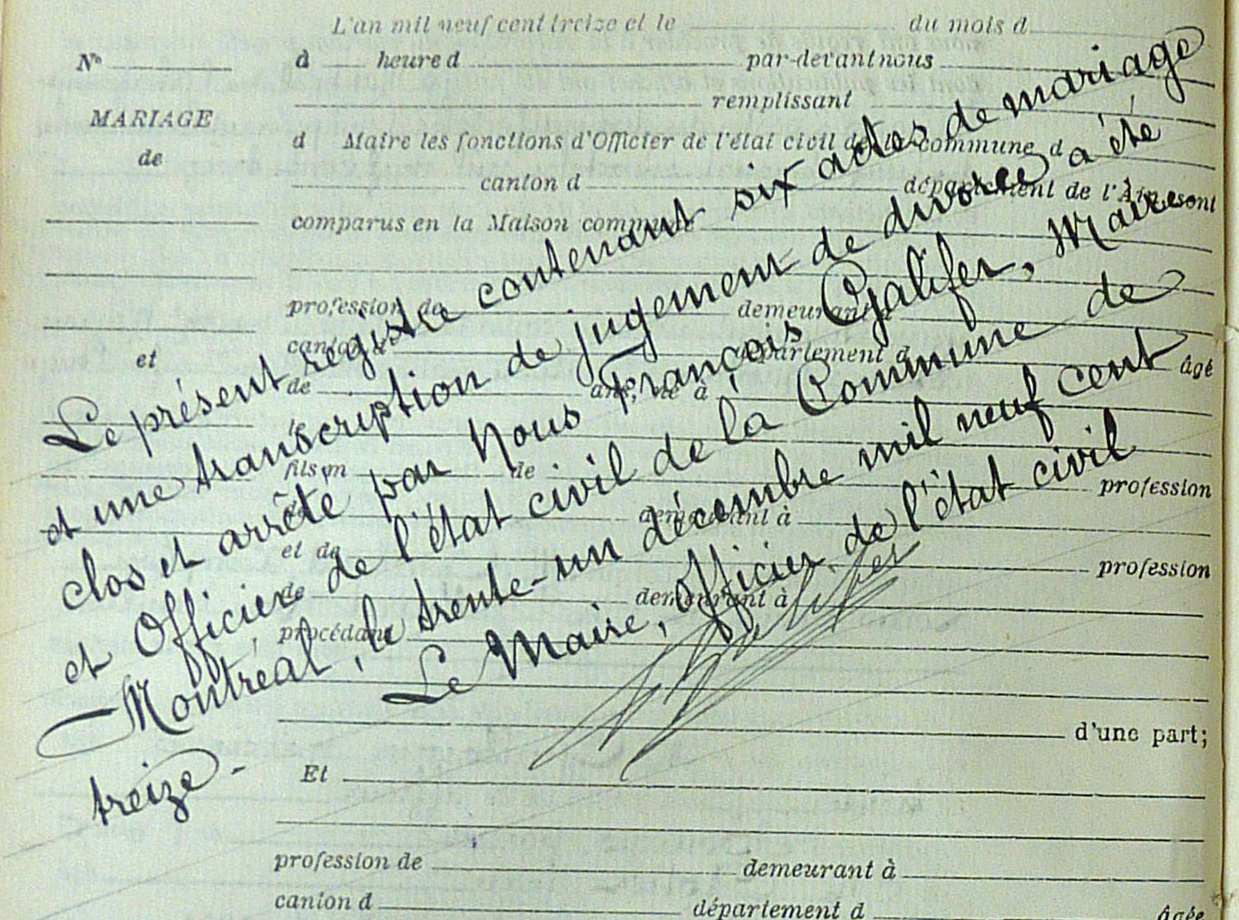 L'an mil neuf cent treize et le du mois d
Nº d heure d par-devant nous
remplissant
MARIAGE
d Maire les fonctions d'Officier de l'état civil de la commune d
de
canton d département de l'Ain sont
comparus en la Maison commune
profession de demeurant à
canton d département d
et
de ans, né à âgé
le
fils de
profession
de demeurant à
et de
profession
de demeurant à
procédant
d'une part;
Et
profession de demeurant à
canton d département d âgée
Le présent registre contenant six actes de mariage
et une transcription de jugement de divorce a été
clos et arrêté par Nous François Galifer, Maire
et Officier de l'état civil de la Commune de
Montréal, le trente-un décembre mil neuf cent
treize -
Le Maire, officier de l'état civil
Galifer